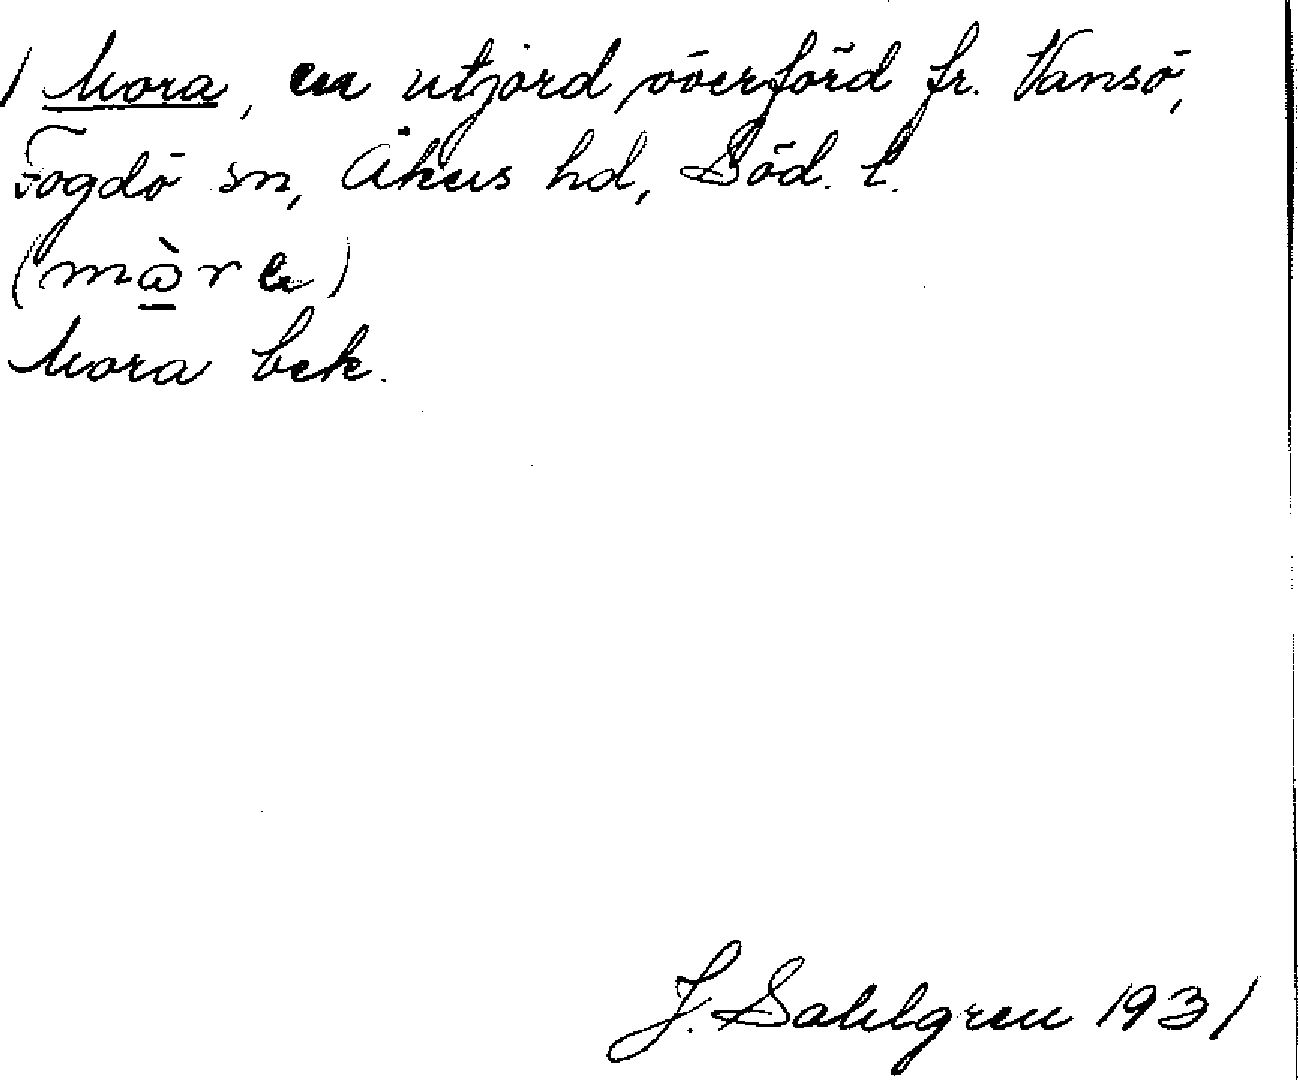 1 Mora, en utjord överförd fr. Vansö,
Fogdö sn, Åkers hd, Söd. l.
(mὼra)
Mora bek.
J. Sahlgren 1931